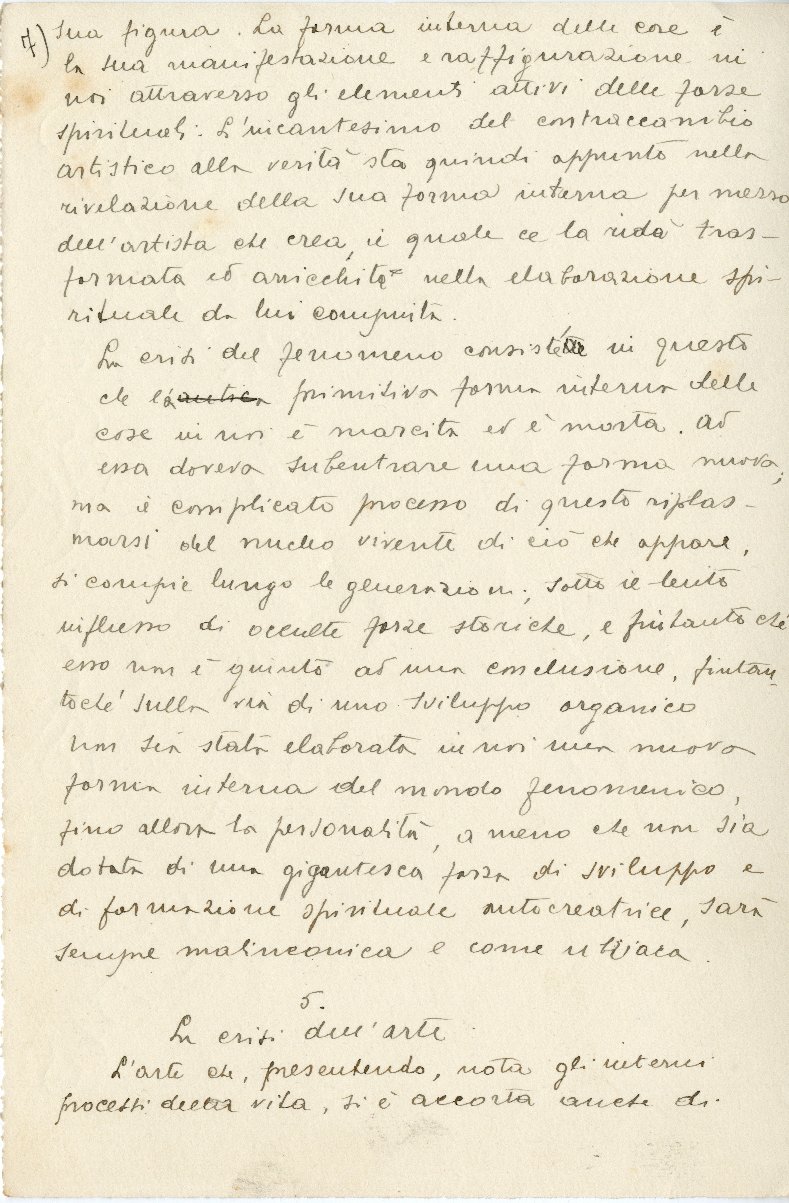 7) sua figura. La forma interna delle cose è
la sua manifestazione e raffigurazione in
noi attraverso gli elementi attivi delle forze
spirituali. L'incantesimo del contraccambio
artistico alla verità sta quindi appunto nella
rivelazione della sua forma interna per mezzo
dell'artista che crea, il quale ce la ridà tras-
formata ed arricchita nella elaborazione spi-
rituale da lui compiuta.
La crisi del fenomeno consiste in questo
che la primitiva forma interna delle
cose in noi è marcita ed è morta. Ad
essa doveva subentrare una forma nuova;
ma il complicato processo di questo riplas-
marsi del nucleo vivente di ciò che appare,
si compie lungo le generazioni, sotto il lento
influsso di occulte forze storiche, e fintantoché
esso non è giunto ad una conclusione, fintan-
toché sulla via di uno sviluppo organico
non sia stata elaborata in noi una nuova
forma interna del mondo fenomenico,
fino allora la personalità, a meno che non sia
dotata di una gigantesca forza di sviluppo e
di formazione spirituale autocreatrice, sarà
sempre malinconica e come
5.
La crisi dell'arte
L'arte che, presentendo, nota gli interni
processi della vita, si è accorta anche di